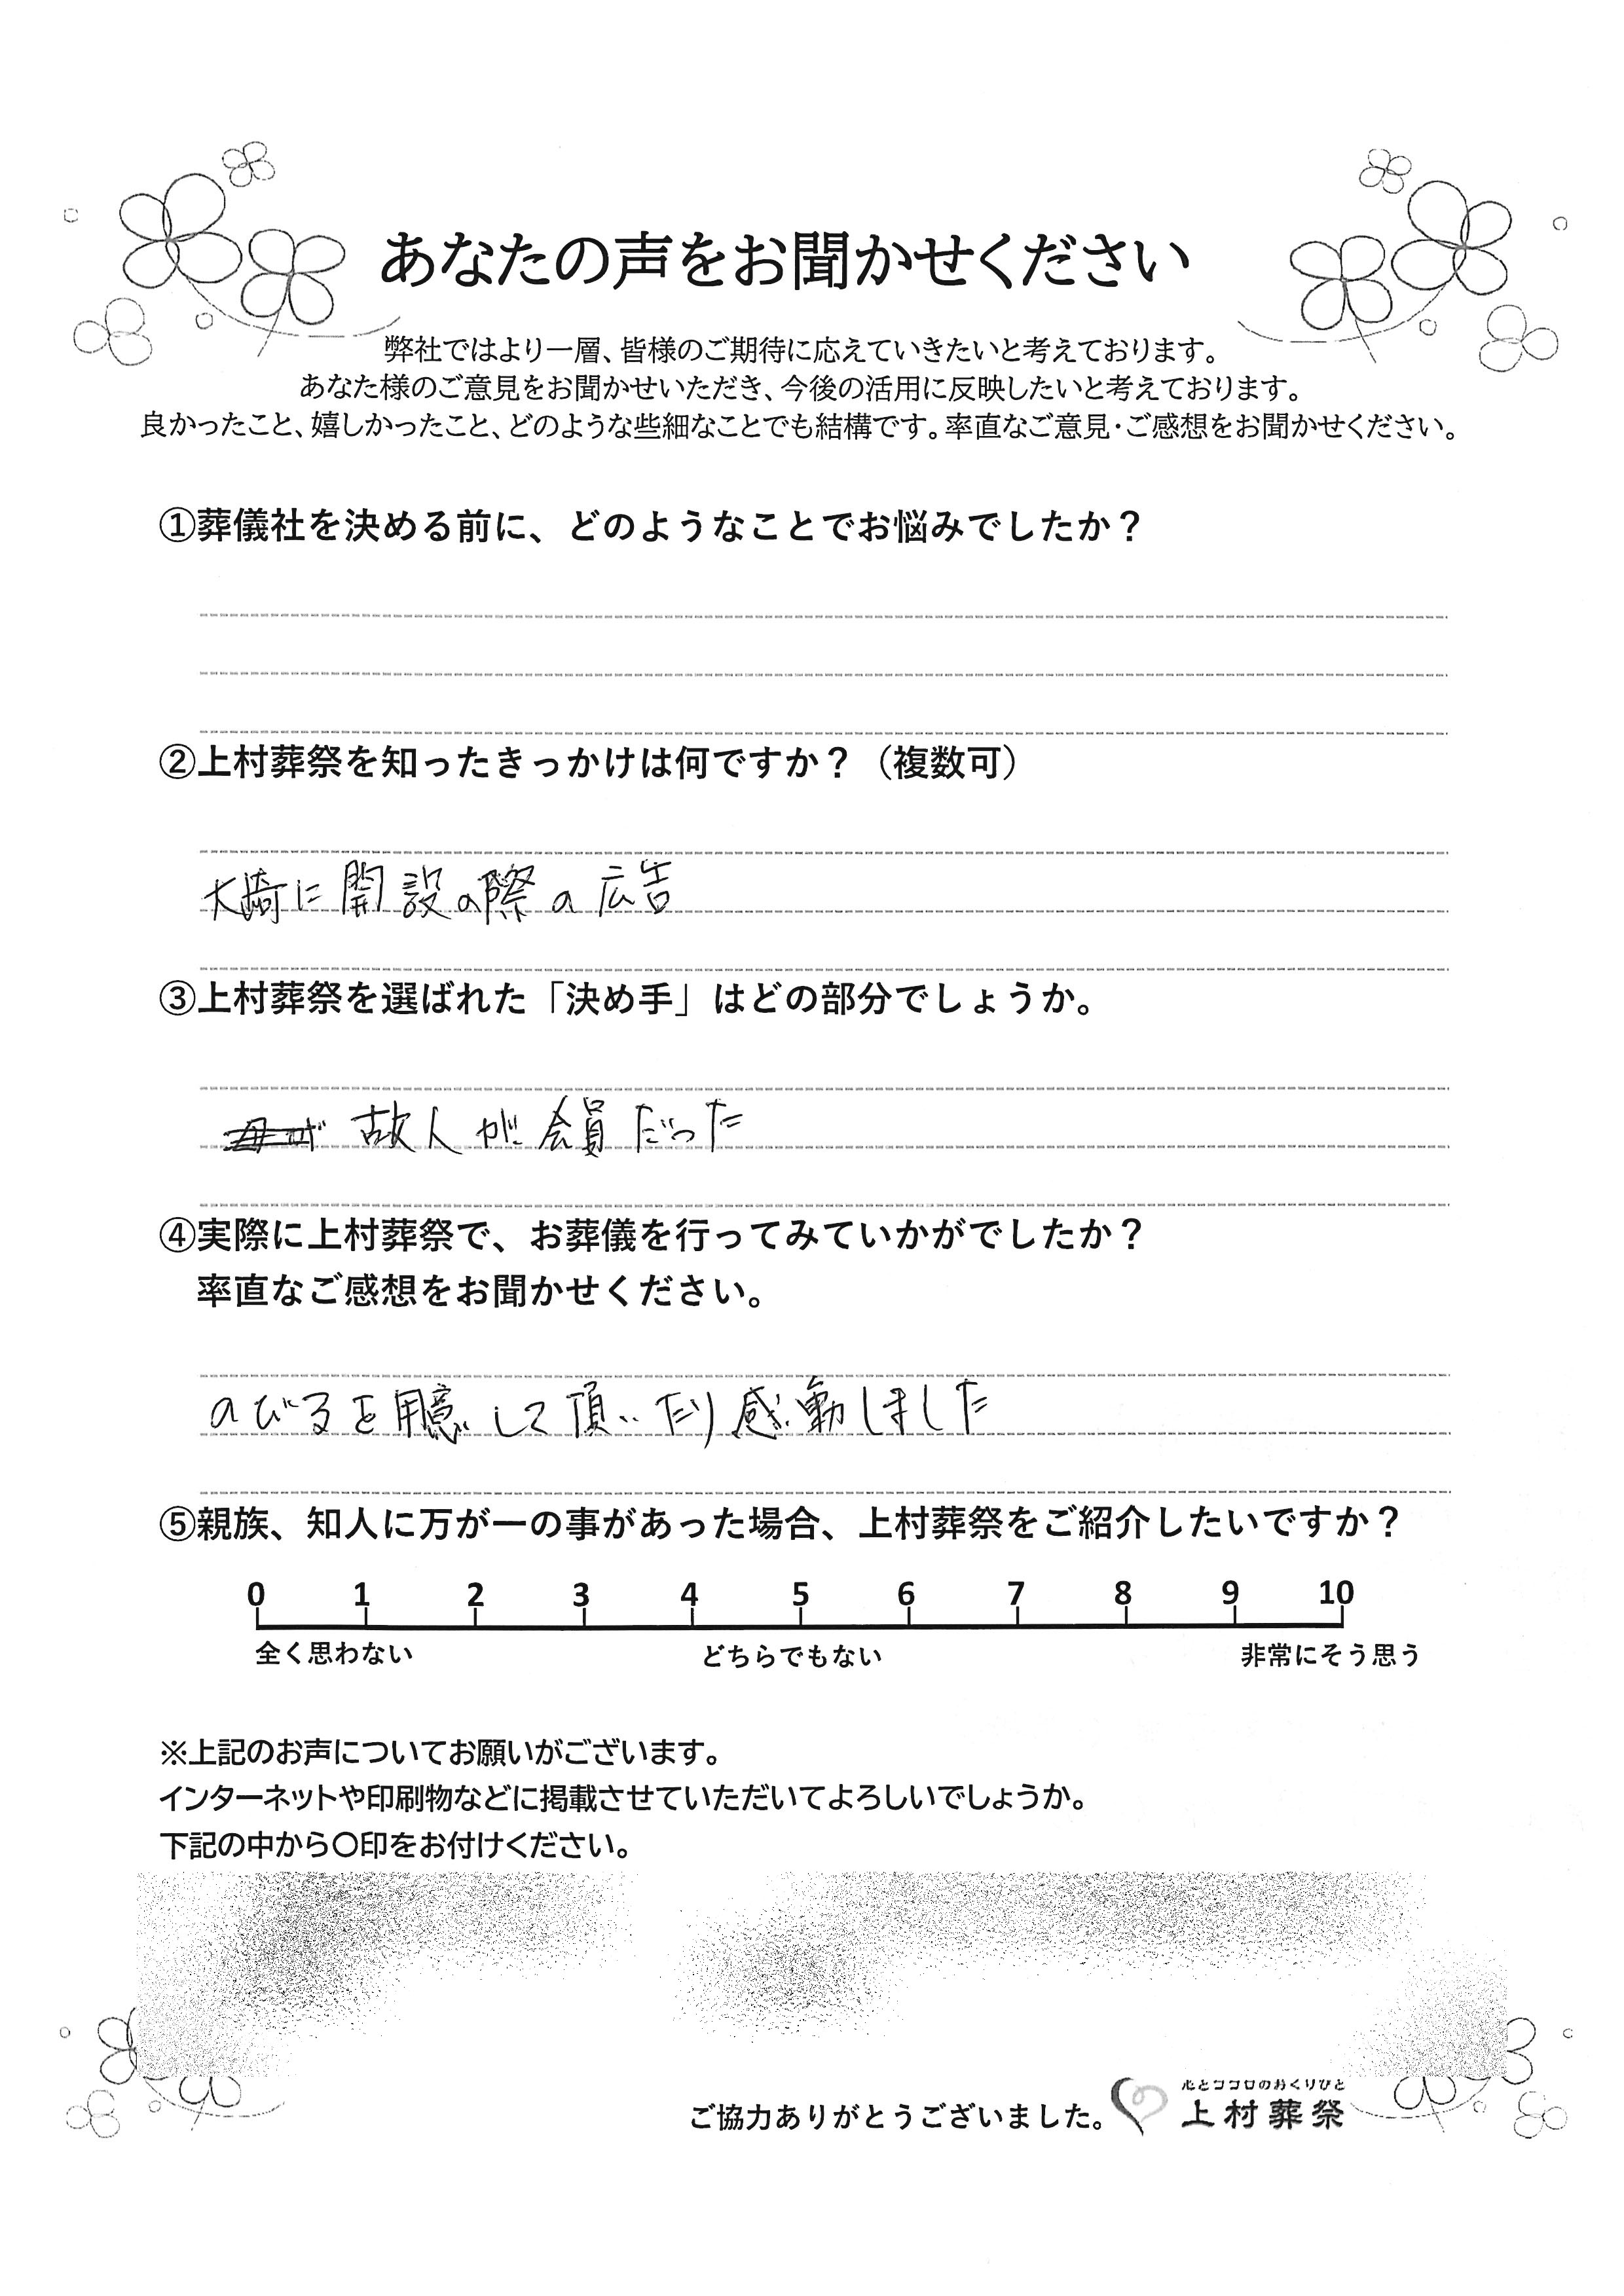 あなたの声をお聞かせください
弊社ではより一層、皆様のご期待に応えていきたいと考えております。
あなた様のご意見をお聞かせいただき、今後の活用に反映したいと考えております。
良かったこと、嬉しかったこと、どのような些細なことでも結構です。率直なご意見・ご感想をお聞かせください。
①葬儀社を決める前に、どのようなことでお悩みでしたか？
②上村葬祭を知ったきっかけは何ですか？（複数可）
大崎に開設の際の広告
③上村葬祭を選ばれた「決め手」はどの部分でしょうか。
故人が会員だった
④実際に上村葬祭で、お葬儀を行ってみていかがでしたか？
率直なご感想をお聞かせください。
のびるを用意して頂いたり感動しました
⑤親族、知人に万が一の事があった場合、上村葬祭をご紹介したいですか？
0 1 2 3 4 5 6 7 8 9 10
全く思わない どちらでもない 非常にそう思う
※上記のお声についてお願いがございます。
インターネットや印刷物などに掲載させていただいてよろしいでしょうか。
下記の中から〇印をお付けください。
心とココロのおくりびと
ご協力ありがとうございました。 上村葬祭